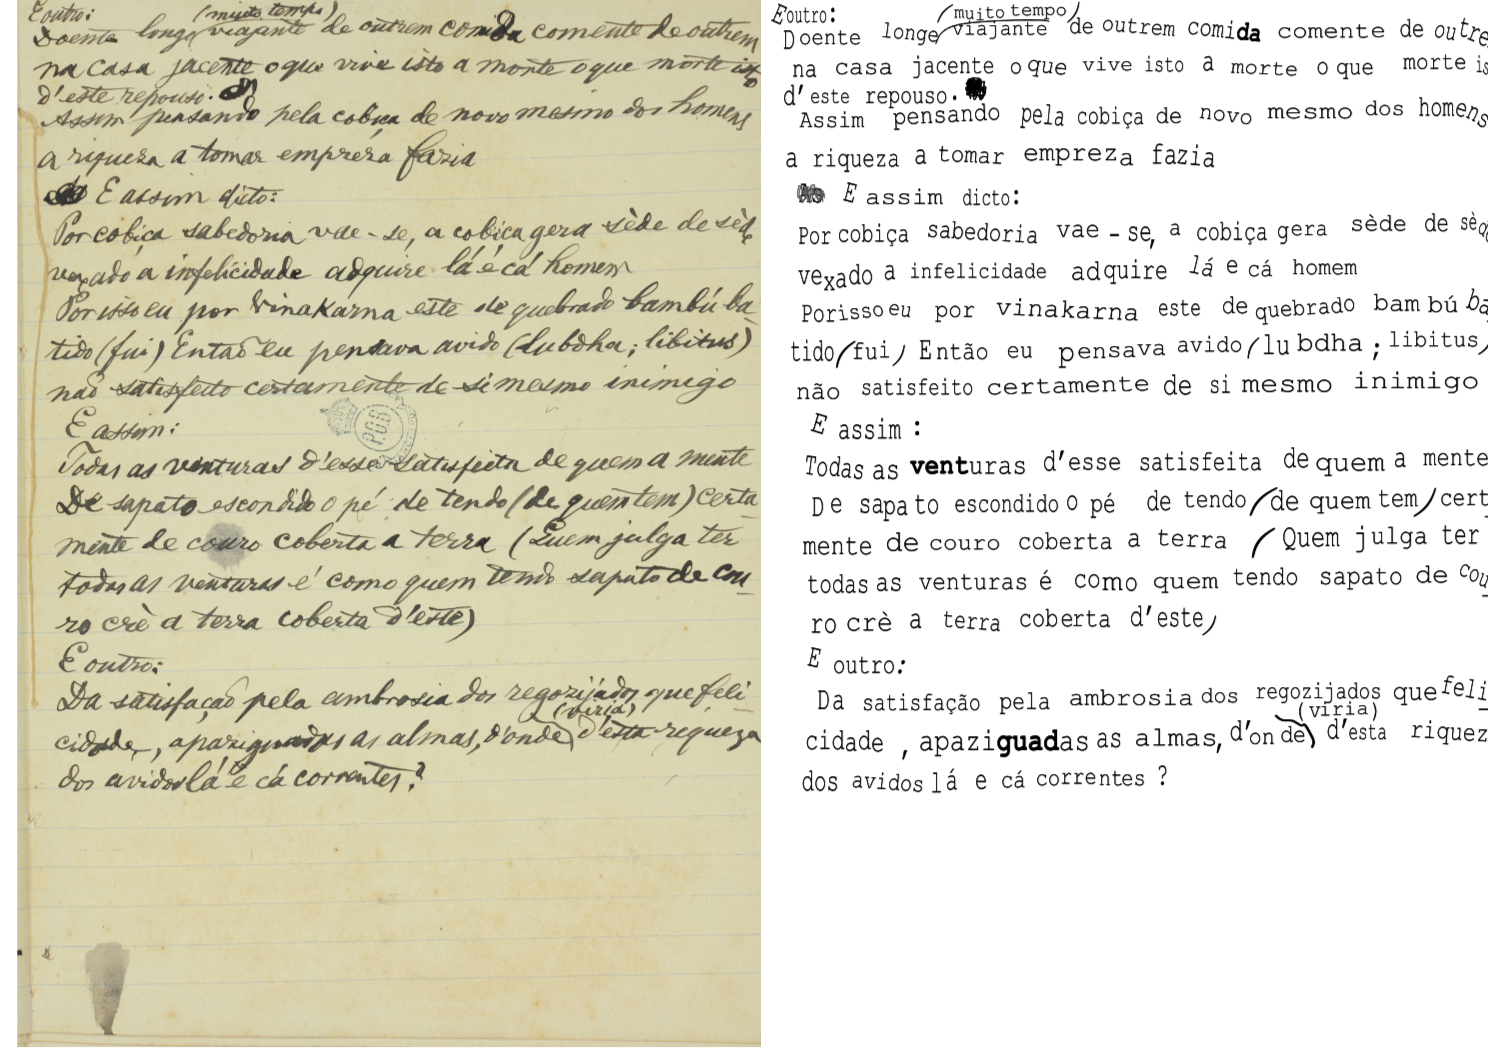 E outro:
(muito tempo)
Doente longe viajante de outrem comida comente de outrem
na casa jacente o que vive isto a morte o que morte isto
d'este repouso.
Assim pensando pela cobiça de novo mesmo dos homens
a riqueza a tomar empreza fazia
E assim dicto:
Por cobiça sabedoria vae-se, a cobiça gera sède de sède
vexado a infelicidade adquire lá e cá homem
Por isso eu por Vinakarna este de quebrado bambú ba-
tido (fui) Então eu pensava avido (lubdha; libitus)
não satisfeito certamente de si mesmo inimigo
E assim:
Todas as venturas d'esse satisfeita de quem a mente
De sapato escondido o pé de tendo (de quem tem) certa-
mente de couro coberta a terra (Quem julga ter
todas as venturas é como quem tendo sapato de cou-
ro crè a terra coberta d'este)
E outro:
Da satisfação pela ambrosia dos regozijados que feli-
(viria)
cidade, apaziguadas as almas, d'onde) d'esta riqueza
dos avidos lá e cá correntes?
POR
Eoutro:
(muito tempo)
Doente longe viajante de outrem comida comente de outre
na casa jacente o que vive isto a morte o que morte is
d'este repouso.
Assim pensando pela cobiça de novo mesmo dos homens
a riqueza a tomar empreza fazia
E assim dicto:
Por cobiça sabedoria vae-se, a cobiça gera sède de sèd
vexado a infelicidade adquire lá e cá homem
Porisso eu por vinakarna este de quebrado bambú ba
tido (fui) Então eu pensava avido (lubdha; libitus)
não satisfeito certamente de si mesmo inimigo
E assim:
Todas as venturas d'esse satisfeita de quem a mente
De sapato escondido o pé de tendo (de quem tem) cert
mente de couro coberta a terra (Quem julga ter
todas as venturas é como quem tendo sapato de cou-
ro crè a terra coberta d'este)
E outro:
Da satisfação pela ambrosia dos regozijados que feli-
(viria)
cidade, apaziguadas as almas, d'onde) d'esta riquez
dos avidos lá e cá correntes?